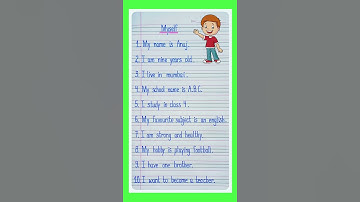 Myself
1. My name is Anuj.
2. I am nine years old.
3. I live in mumbai.
4. My school name is A.B.C.
5. I study in class 4.
6. My favourite subject is an english.
7. I am strong and healthy.
8. My hobby is playing football.
9. I have one brother.
10. I want to become a teacher.